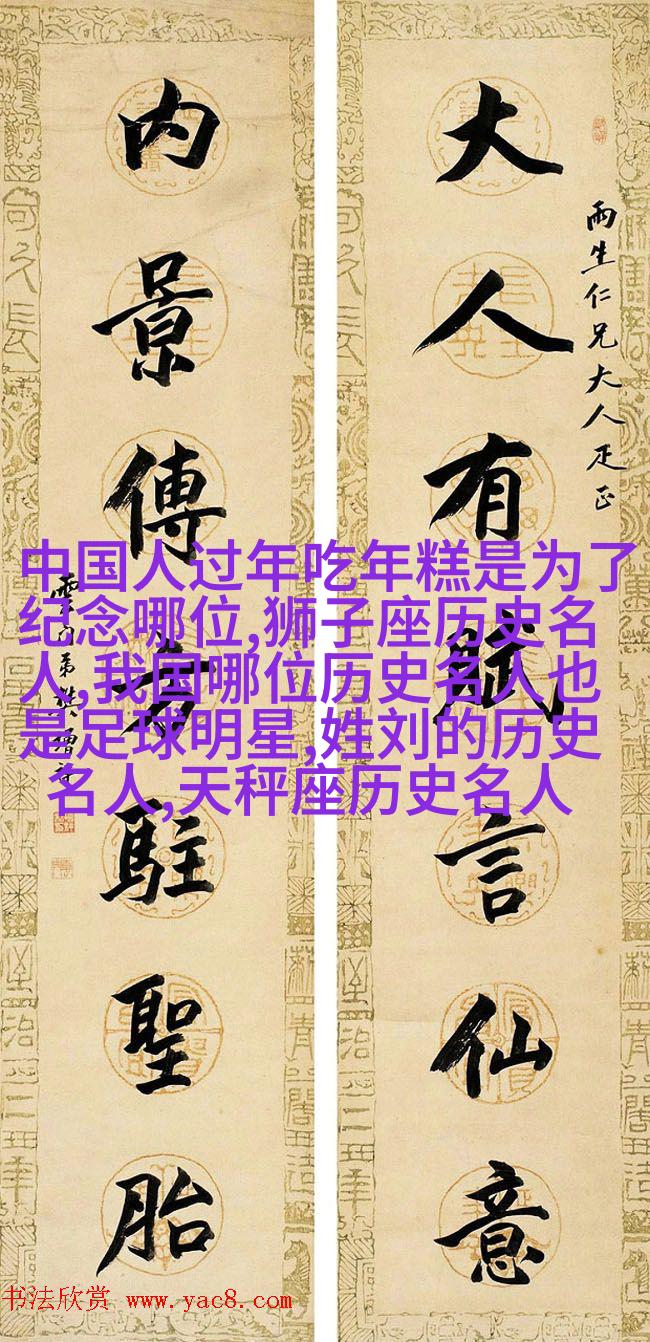 大人有賦言仙意
雨生仁兄大人疋正
内景傳駐聖胎
雲門弟樊增祥
中国人过年吃年糕是为了
纪念哪位,狮子座历史名
人,我国哪位历史名人也
是足球明星,姓刘的历史
名人,天秤座历史名人
书法欣赏 www.yac8.com